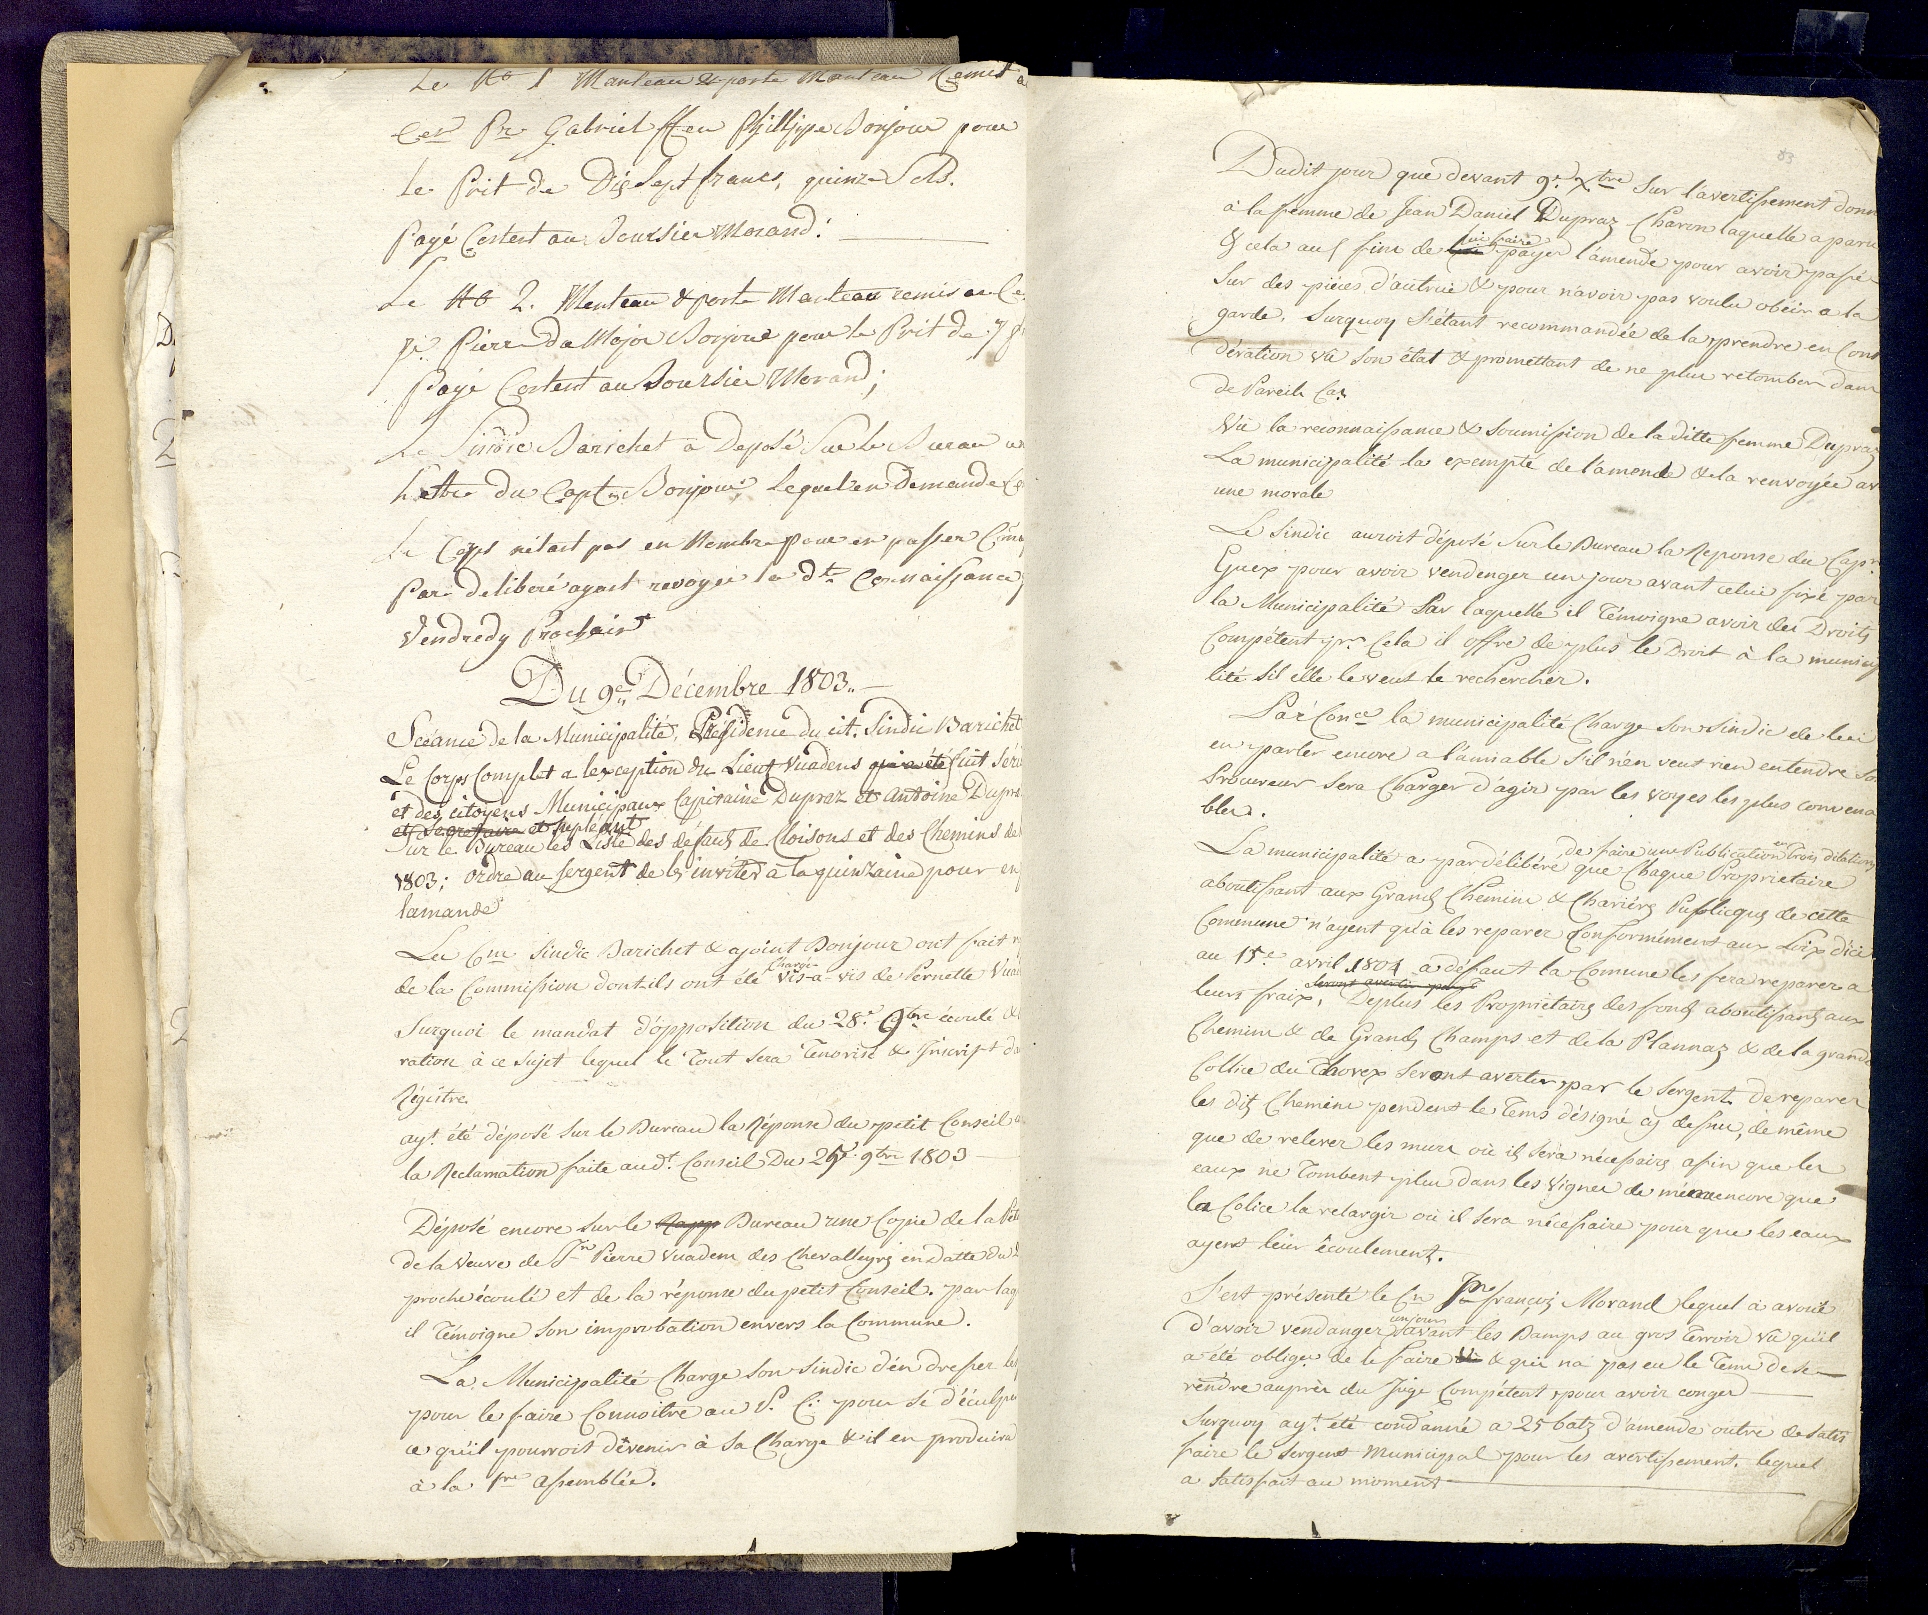 Le No 1 Manteau & porte Manteau Remis a
Cen Pre Gabriel ffeu Phillippe Bonjour pour
Le Prit de Dix Sept francs, quinze Sols.
Payé Content au Boursier Morand:
Le No 2. Menteau & porte Manteau remis au Ce
Pierre du Major Bonjour pour le Prit de 7
Payé Content au Boursier Morand;
Le Sindic Barichet a Déposé Sur le Bureau u
Lettre du Capt: Bonjour lequel en Demande
Le Corps nétant pas en Nombre pour en passer
Par délibéré ayant revoyer la dte Connaissance
Vendredy Prochain
Du 9e Décembre 1803.
Scéance de la Municipalité, Présidence du cit. Sindic Barichet
Le Corps Complet a lexception du Lieut Vuadens qui a été
et des citoyens Municipaux Capitaine Dupraz et Antoine Dupra
et Secretaire et supléant
Sur le Bureau les Liste des défauts de Cloisons et des Chemins de
1803; ordre au sergent de les inviter a la quinzaine pour en
lamande
Les Cns Sindic Barichet & ajoint Bonjour ont fait r
de la Commission dont ils ont été Chargé vis-a-vis de Pernette Vua
Surquoi le mandat d'opposition du 28e 9bre écoulé &
ration à ce Sujet lequel le Tout sera Tenorisé & Inscript da
Régitre
ayt été déposé Sur le Bureau la Réponse du petit Conseil
la Reclamation faite au dt. Conseil Du 25e 9bre 1803
Déposé encore Sur le Rapp Bureau une Copie de la Péti
de la veuve de Jn Pierre Vuadens des Chevalleyres en Datte du
proche écoulé et de la réponse du petit Conseil. par laq
il Témoigne Son improbation envers la Commune.
La Municipalité Charge son Sindic d'en dresser
pour le faire Connoitre au P. C: pour se d'éculper
ce qu'il pourroit dévenir à Sa Charge & il en produira
à la 1re assemblée.
83
Dudit jour que devant 9e Xbre Sur l'avertissement donn
à la femme de Jean Daniel Dupraz Charon laquelle a paru
& cela aux fins de lui faire payer l'amende pour avoir passé
Sur des pièces d'autrui & pour n'avoir pas voulu obéir a la
garde. Surquoy S'étant recommandée de la prendre en Cons
dération vû Son état & promettant de ne plus retomber dans
de Pareils Cas
Vû la reconnaissance & Soumission de la ditte femme Dupraz
La municipalité la exempté de l'amende & la renvoyée av
une morale
Le Sindic auroit déposé Sur le Bureau la Reponse du Capn
Guex pour avoir vendenger un jour avant celui fixé par
la Municipalité Par laquelle il Témoigne avoir des Droits
Compétent pr. Cela il offre de plus le Droit à la municip
lité Sil elle le veut le rechercher.
Par Conce la municipalité Charge Son Sindic de lui
en parler encore a l'amiable S'il n'en veut rien entendre Son
Procureur Sera Charger d'agir par les voyes les plus convena
bles.
La municipalité a par délibéré de faire une Publication en Trois dilations que Chaque Proprietaire
aboutissant aux Grands Chemins & Chariéres Publiques de cette
Commune n'ayent qu'à les reparer Conformément aux Loix d'ici
au 15e avril 1804 a défaut la Comune les fera reparer a
leurs fraix, Seront avertis par Deplus les Proprietaires des fonds aboutissants aux
Chemins & de Grands Champs et de la Plannaz & de la grande
Collice du Thovex Seront avertis par le Sergent de reparer
les dits Chemins pendent le Tems désigné cy dessus, de même
que de relever les murs où ils Sera nécessaires afin que les
eaux ne Tombent plus dans les vignes de même encore que
la Colice la relargir où il Sera nécessaire pour que les eaux
ayent leur écoulement.
S'est présenté le Cn Jn françois Morand lequel a avoué
d'avoir vendanger un jour avant les Bamps au gros Terroir vû qu'il
a été obliger de le faire & qui na pas eu le Tems de se
rendre auprès du Juge Compétent pour avoir conger
Surquoy ayt été condanné a 25 batz d'amende outre de Satis
faire le Sergent Municipal pour les avertissement. lequel
a Satisfait au moment